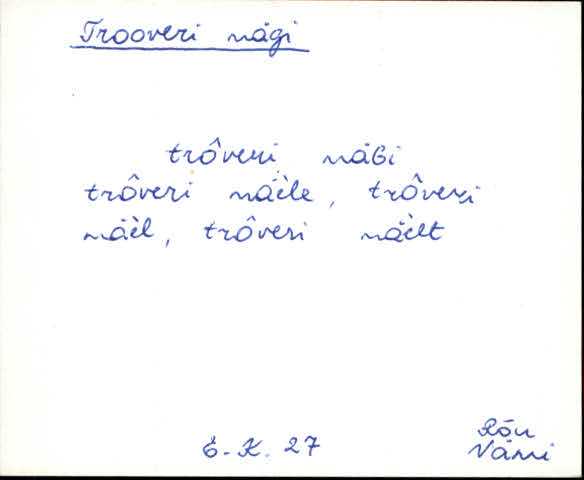 Trooveri mägi
trôveri mäGi
trôveri mäèle, trôveri
mäèl, trôveri mäèlt
E. K. 27
Rõu
Vänni